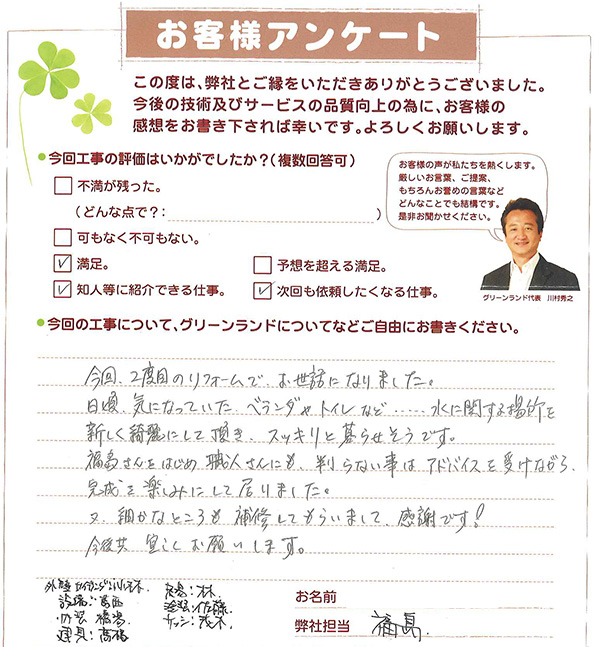 お客様アンケート
この度は、弊社とご縁をいただきありがとうございました。
今後の技術及びサービスの品質向上の為に、お客様の
感想をお書き下されば幸いです。よろしくお願いします。
今回工事の評価はいかがでしたか?(複数回答可)
不満が残った。
(どんな点で?: )
可もなく不可もない。
満足。
予想を超える満足。
知人等に紹介できる仕事。
次回も依頼したくなる仕事。
お客様の声が私たちを熱くします。
厳しいお言葉、ご提案、
もちろんお誉めの言葉など
どんなことでも結構です。
是非お聞かせください。
グリーンランド代表 川村秀之
今回の工事について、グリーンランドについてなどご自由にお書きください。
今回、2度目のリフォームで、お世話になりました。
日頃、気になっていた、ベランダやトイレなど……水に関する場所を
新しく綺麗にして頂き、スッキリと暮らせそうです。
福島さんをはじめ、職人さんにも、判らない事はアドバイスを受けながら、
完成を楽しみにして居りました。
又、細かなところも補修してもらいまして、感謝です!
今後共 宜しくお願いします。
設備:葛西
建具:高橋
塗装:佐藤
サッシ:茂木
お名前
弊社担当 福島